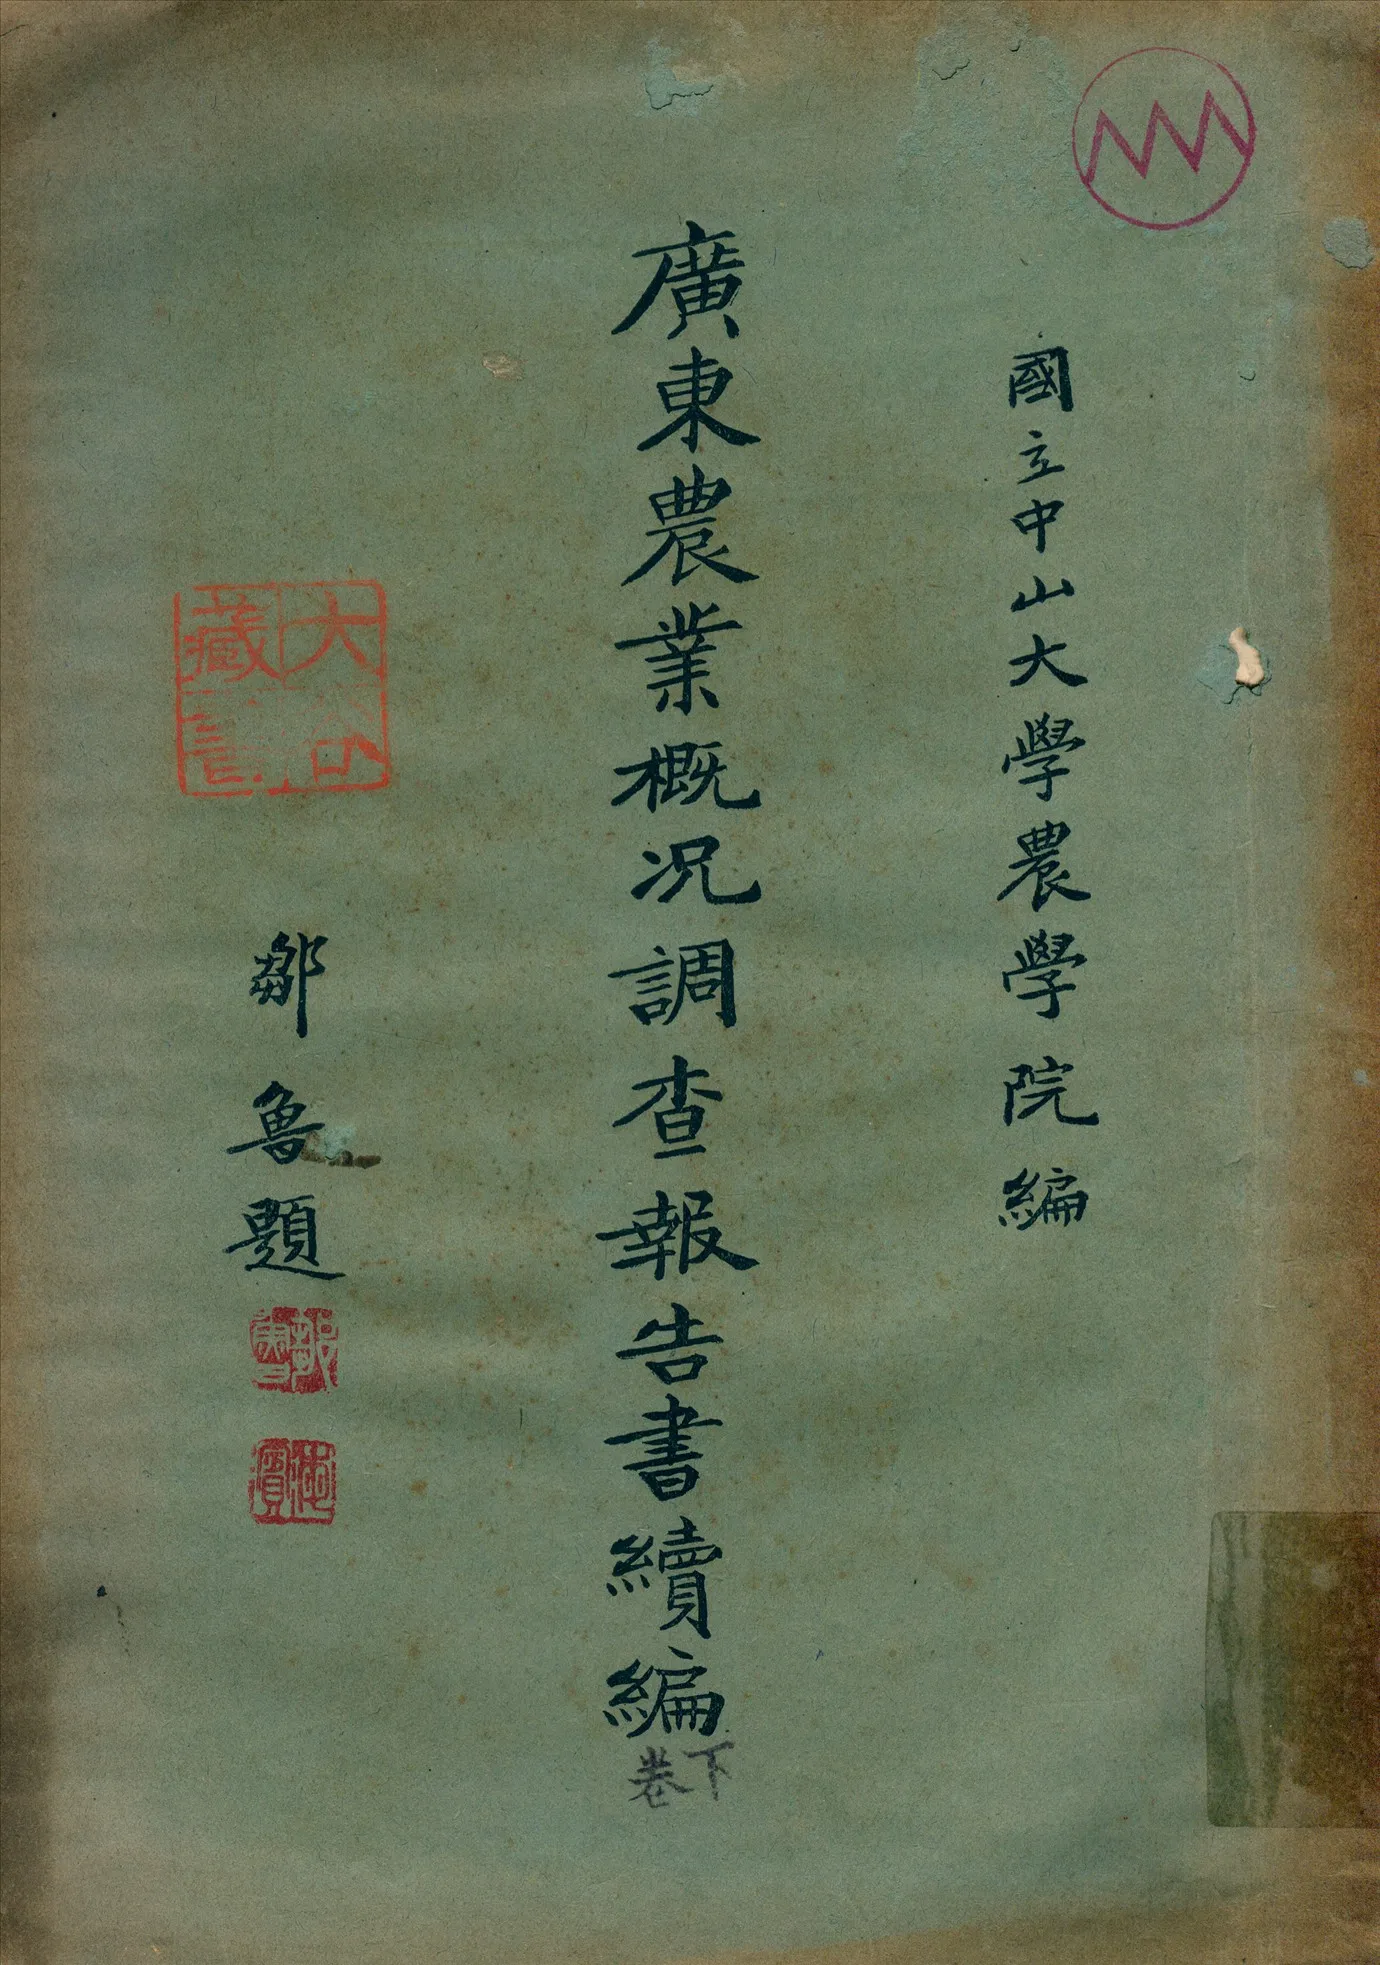 國立中山大學農學院編
廣東農業概況調查報告書續編
下卷
大谷藏書
鄒魯題
鄒魯
海濱